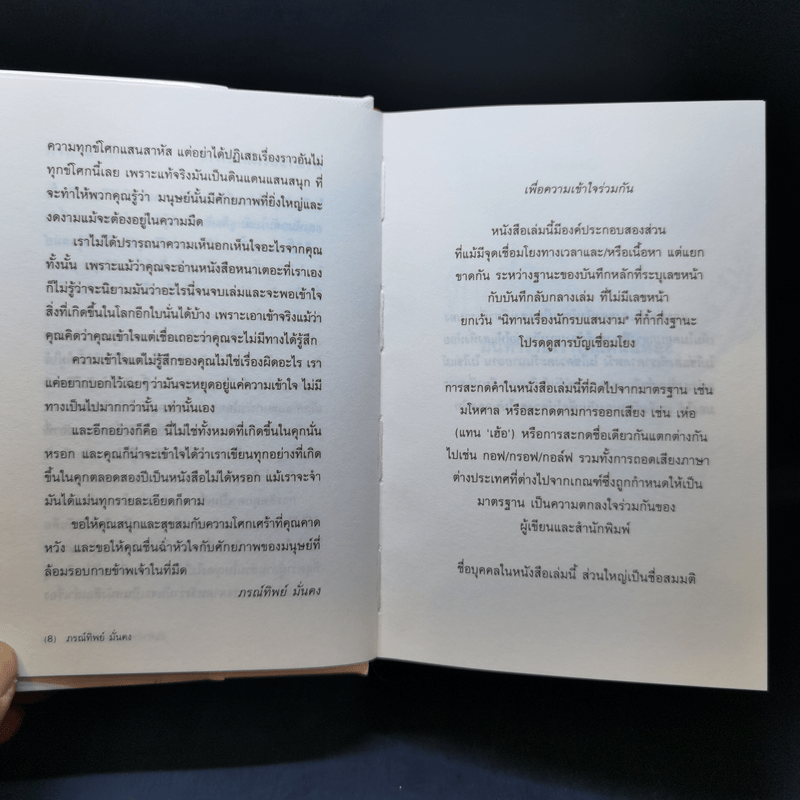 ความทุกข์โศกแสนสาหัส แต่อย่าได้ปฏิเสธเรื่องราวอันไม่
ทุกข์โศกนี้เลย เพราะแท้จริงมันเป็นดินแดนแสนสนุก ที่
จะทำให้พวกคุณรู้ว่า มนุษย์นั้นมีศักยภาพที่ยิ่งใหญ่และ
งดงามแม้จะต้องอยู่ในความมืด
เราไม่ได้ปรารถนาความเห็นอกเห็นใจอะไรจากคุณ
ทั้งนั้น เพราะแม้ว่าคุณจะอ่านหนังสือหนาเตอะที่เราเอง
ก็ไม่รู้ว่าจะนิยามมันว่าอะไรนี่จนจบเล่มและจะพอเข้าใจ
สิ่งที่เกิดขึ้นในโลกอีกใบนั่นได้บ้าง เพราะเอาเข้าจริงแม้ว่า
คุณคิดว่าคุณเข้าใจแต่เชื่อเถอะว่าคุณจะไม่มีทางได้รู้สึก
ความเข้าใจแต่ไม่รู้สึกของคุณไม่ใช่เรื่องผิดอะไร เรา
แค่อยากบอกไว้เฉยๆว่ามันจะหยุดอยู่แค่ความเข้าใจ ไม่มี
ทางเป็นไปมากกว่านั้น เท่านั้นเอง
และอีกอย่างก็คือ นี่ไม่ใช่ทั้งหมดที่เกิดขึ้นในคุกนั่น
หรอก และคุณก็น่าจะเข้าใจได้ว่าเราเขียนทุกอย่างที่เกิด
ขึ้นในคุกตลอดสองปีเป็นหนังสือไม่ได้หรอก แม้เราจะจำ
มันได้แม่นทุกรายละเอียดก็ตาม
ขอให้คุณสนุกและสุขสมกับความโศกเศร้าที่คุณคาด
หวัง และขอให้คุณชื่นฉ่ำหัวใจกับศักยภาพของมนุษย์ที่
ล้อมรอบกายข้าพเจ้าในที่มืด
ภรณ์ทิพย์ มั่นคง
(8) ภรณ์ทิพย์ มั่นคง
เพื่อความเข้าใจร่วมกัน
หนังสือเล่มนี้มีองค์ประกอบสองส่วน
ที่แม้มีจุดเชื่อมโยงทางเวลาและ/หรือเนื้อหา แต่แยก
ขาดกัน ระหว่างฐานะของบันทึกหลักที่ระบุเลขหน้า
กับบันทึกลับกลางเล่ม ที่ไม่มีเลขหน้า
ยกเว้น "นิทานเรื่องนักรบแสนงาม" ที่ก้ำกึ่งฐานะ
โปรดดูสารบัญเชื่อมโยง
การสะกดคำในหนังสือเล่มนี้ที่ผิดไปจากมาตรฐาน เช่น
มโหศาล หรือสะกดตามการออกเสียง เช่น เห่อ
(แทน 'เฮ้อ') หรือการสะกดชื่อเดียวกันแตกต่างกัน
ไปเช่น กอฟ/กรอฟ/กอล์ฟ รวมทั้งการถอดเสียงภาษา
ต่างประเทศที่ต่างไปจากเกณฑ์ซึ่งถูกกำหนดให้เป็น
มาตรฐาน เป็นความตกลงใจร่วมกันของ
ผู้เขียนและสำนักพิมพ์
ชื่อบุคคลในหนังสือเล่มนี้ ส่วนใหญ่เป็นชื่อสมมติ